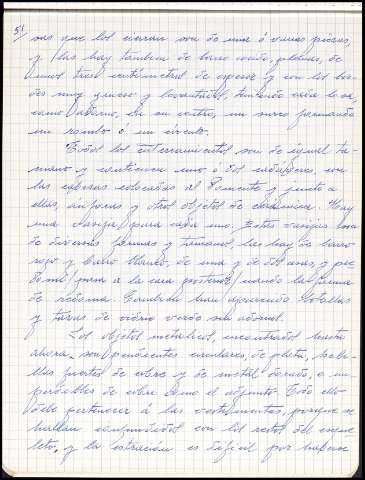 51
sas que los cierran son de una ó varias piezas,
y las hay tambien de barro cocido, planas, de
unos tres centímetros de espesor y con los bor-
des muy gruesos y levantados, teniendo cada losa,
como adorno, en su centro, un surco formando
un rombo ó un círculo.
Todos los enterramientos son de igual ta-
maño y contienen uno ó dos cadáveres, con
las cabezas colocadas al Poniente y junto a
ellas, ánforas y otros objetos de cerámica. Hay
una vasija para cada uno. Estas vasijas son
de diversas formas y tamaños, las hay de barro
rojo y barro blanco, de una y de dos asas, y
de redoma. Tambien han aparecido botellas
y tazas de vidrio verde sin adornos.
Los objetos metálicos, encontrados hasta
ahora, son pendientes circulares, de plata, hebi-
llas puertas de cobre y de metal dorado, e im-
perdibles de cobre como el adjunto. Todo ello
debe pertenecer á las vestimentas, porque se
hallan confundidos con los restos del esque-
leto, y la extracción es difícil por haberse